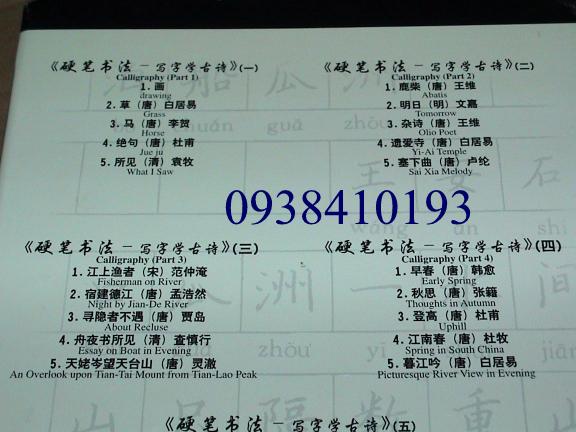 《硬笔书法 – 写字学古诗》(一)
Calligraphy (Part 1)
1. 画
drawing
2. 草（唐）白居易
Grass
3. 马（唐）李贺
Horse
4. 绝句（唐）杜甫
Jue ju
5. 所见（清）袁牧
What I Saw
《硬笔书法 – 写字学古诗》(二)
Calligraphy (Part 2)
1. 鹿柴（唐）王维
Abatis
2. 明日（明）文嘉
Tomorrow
3. 杂诗（唐）王维
Olio Poet
4. 遗爱寺（唐）白居易
Yi-Ai Temple
5. 塞下曲（唐）卢纶
Sai Xia Melody
0938410193
《硬笔书法 – 写字学古诗》(三)
Calligraphy (Part 3)
1. 江上渔者（宋）范仲淹
Fisherman on River
2. 宿建德江（唐）孟浩然
Night by Jian-De River
3. 寻隐者不遇（唐）贾岛
About Recluse
4. 舟夜书所见（清）查慎行
Essay on Boat in Evening
5. 天姥岑望天台山（唐）灵澈
An Overlook upon Tian-Tai Mount from Tian-Lao Peak
《硬笔书法 – 写字学古诗》(四)
Calligraphy (Part 4)
1. 早春（唐）韩愈
Early Spring
2. 秋思（唐）张籍
Thoughts in Autumn
3. 登高（唐）杜甫
Uphill
4. 江南春（唐）杜牧
Spring in South China
5. 暮江吟（唐）白居易
Picturesque River View in Evening
《硬笔书法 – 写字学古诗》(五)
瓜 洲
chuán guā zhōu
王 安 石
wáng ān shí
洲 一 间
zhōu yī jiān
山 隔 数 重 山